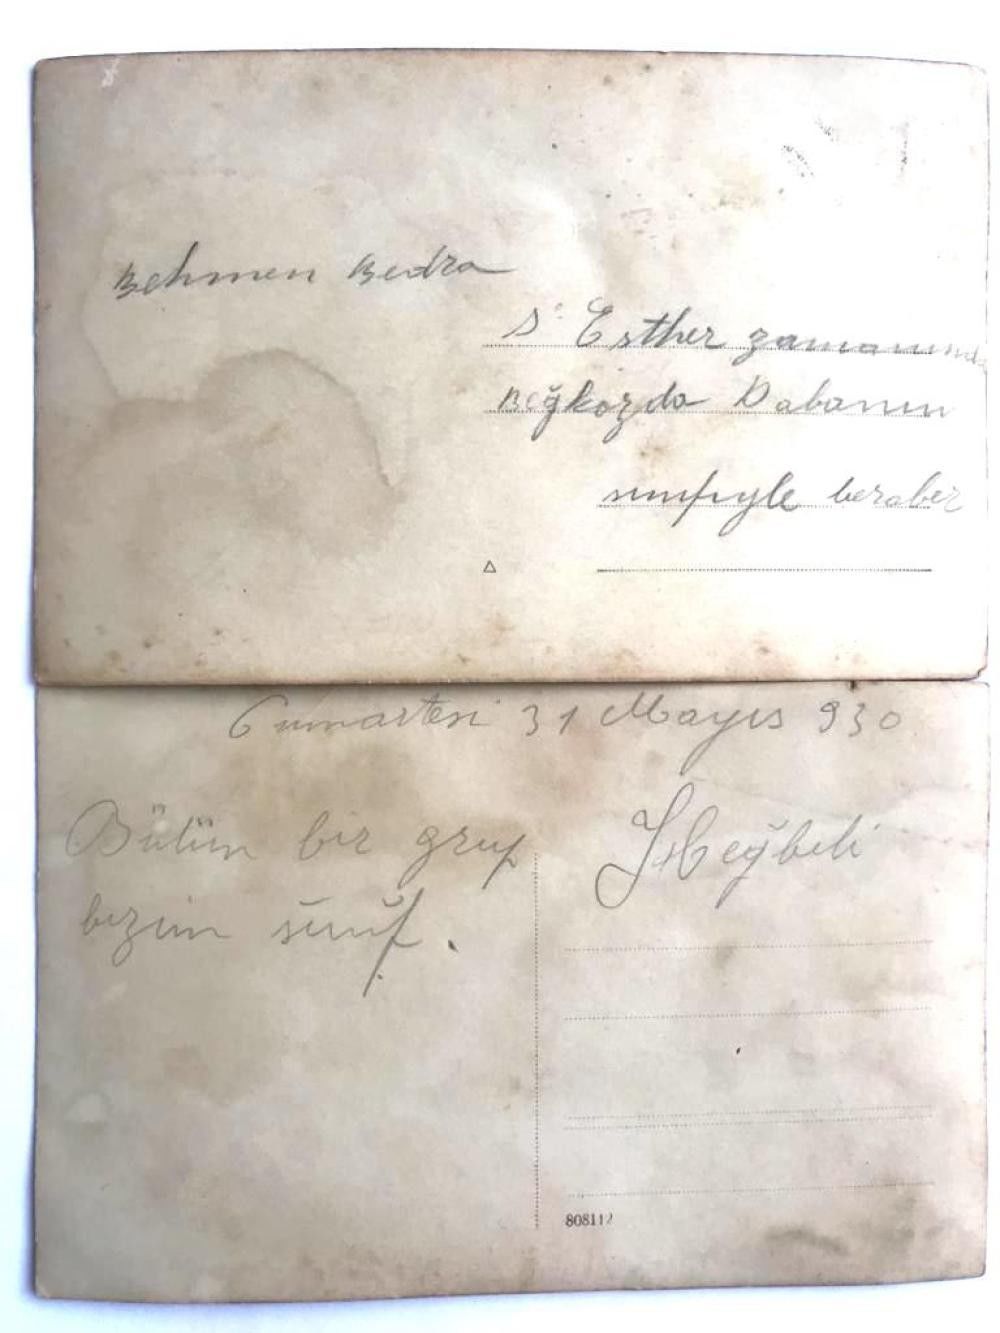 Behmen Bedra
S' Esther zamanında
Beğkozda Babanın
sınıfıyle beraber
Cumartesi 31 Mayıs 930
Bütün bir grup
bizim sınıf.
Heybeli
808112